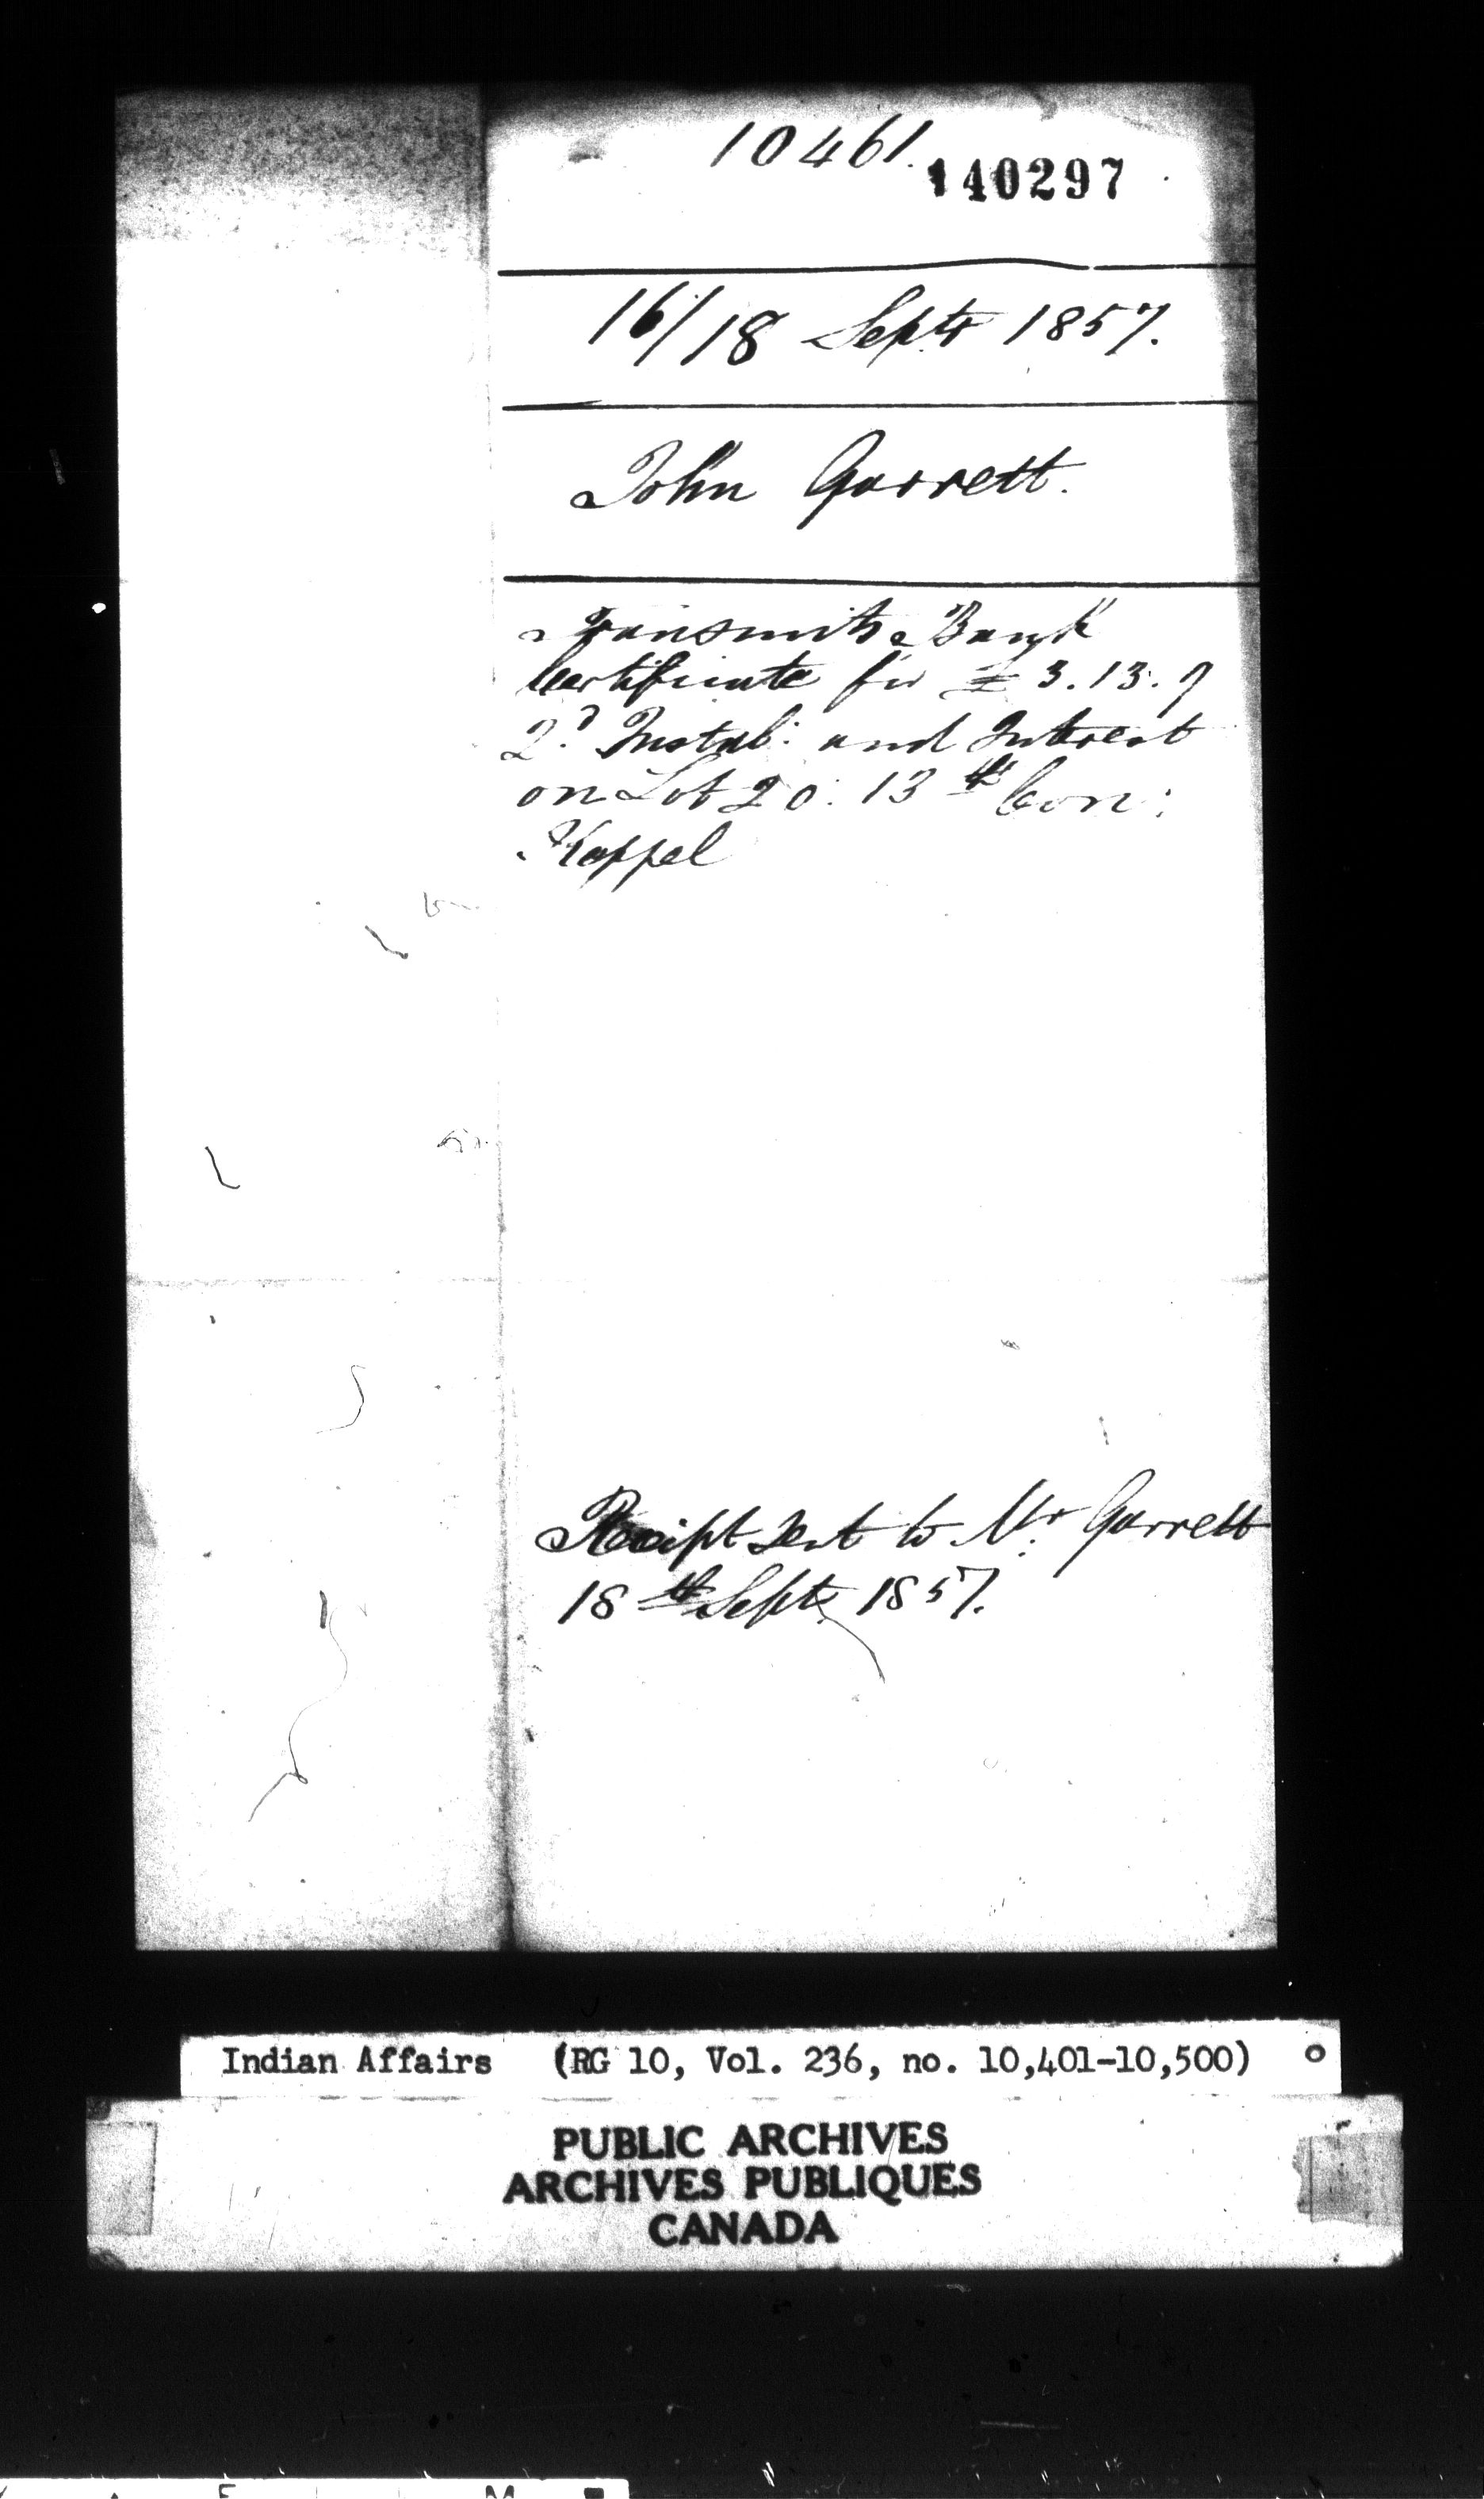 10461.
140297
16/18 Septr 1857.
John Garrett.
Transmits Bank
Certificate for £3.13.9
2d Instal: and Interest
on Lot 20. 13th Con:
Keppel
Receipt sent to Mr Garrett
18th Septr 1857.
Indian Affairs (RG 10, Vol. 236, no. 10,401-10,500)
PUBLIC ARCHIVES
ARCHIVES PUBLIQUES
CANADA